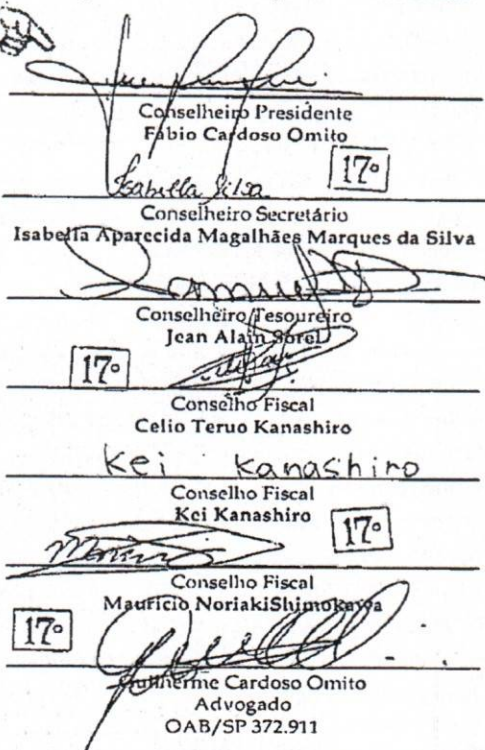 Conselheiro Presidente
Fábio Cardoso Omito
17º
Isabella Silva
Conselheiro Secretário
Isabella Aparecida Magalhães Marques da Silva
Conselheiro Tesoureiro
Jean Alain Sorel
17º
Conselho Fiscal
Celio Teruo Kanashiro
Kei Kanashiro
Conselho Fiscal
Kei Kanashiro
17º
Conselho Fiscal
Mauricio NoriakiShimokawa
17º
Guilherme Cardoso Omito
Advogado
OAB/SP 372.911